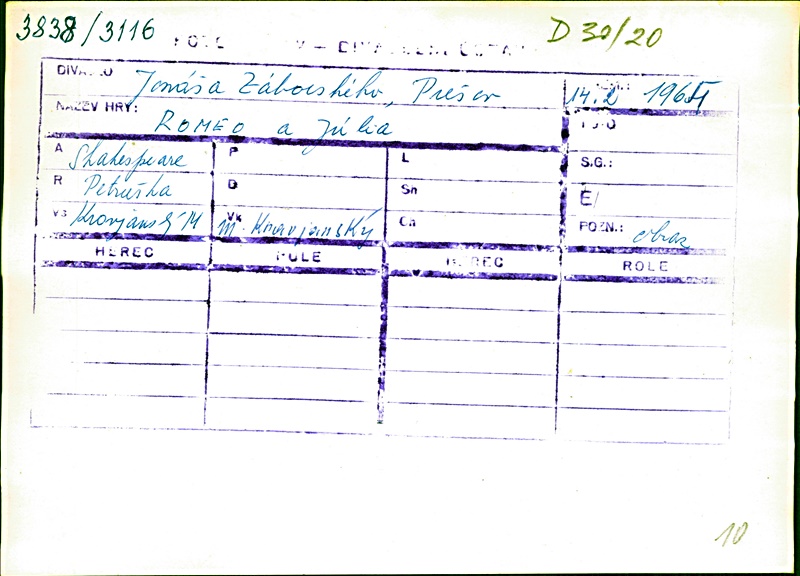 3838/3116 D 30/20
DIVADLO Jonáša Záborského, Prešov 14. 2 1964
NÁZEV HRY: ROMEO a Júlia FOTO
A Shakespeare P L S.G.:
R Petruška D Sn E/
VS Kravjanský M Vk M. Kravjanský Ca POZN.: obraz
HEREC ROLE HEREC ROLE
10